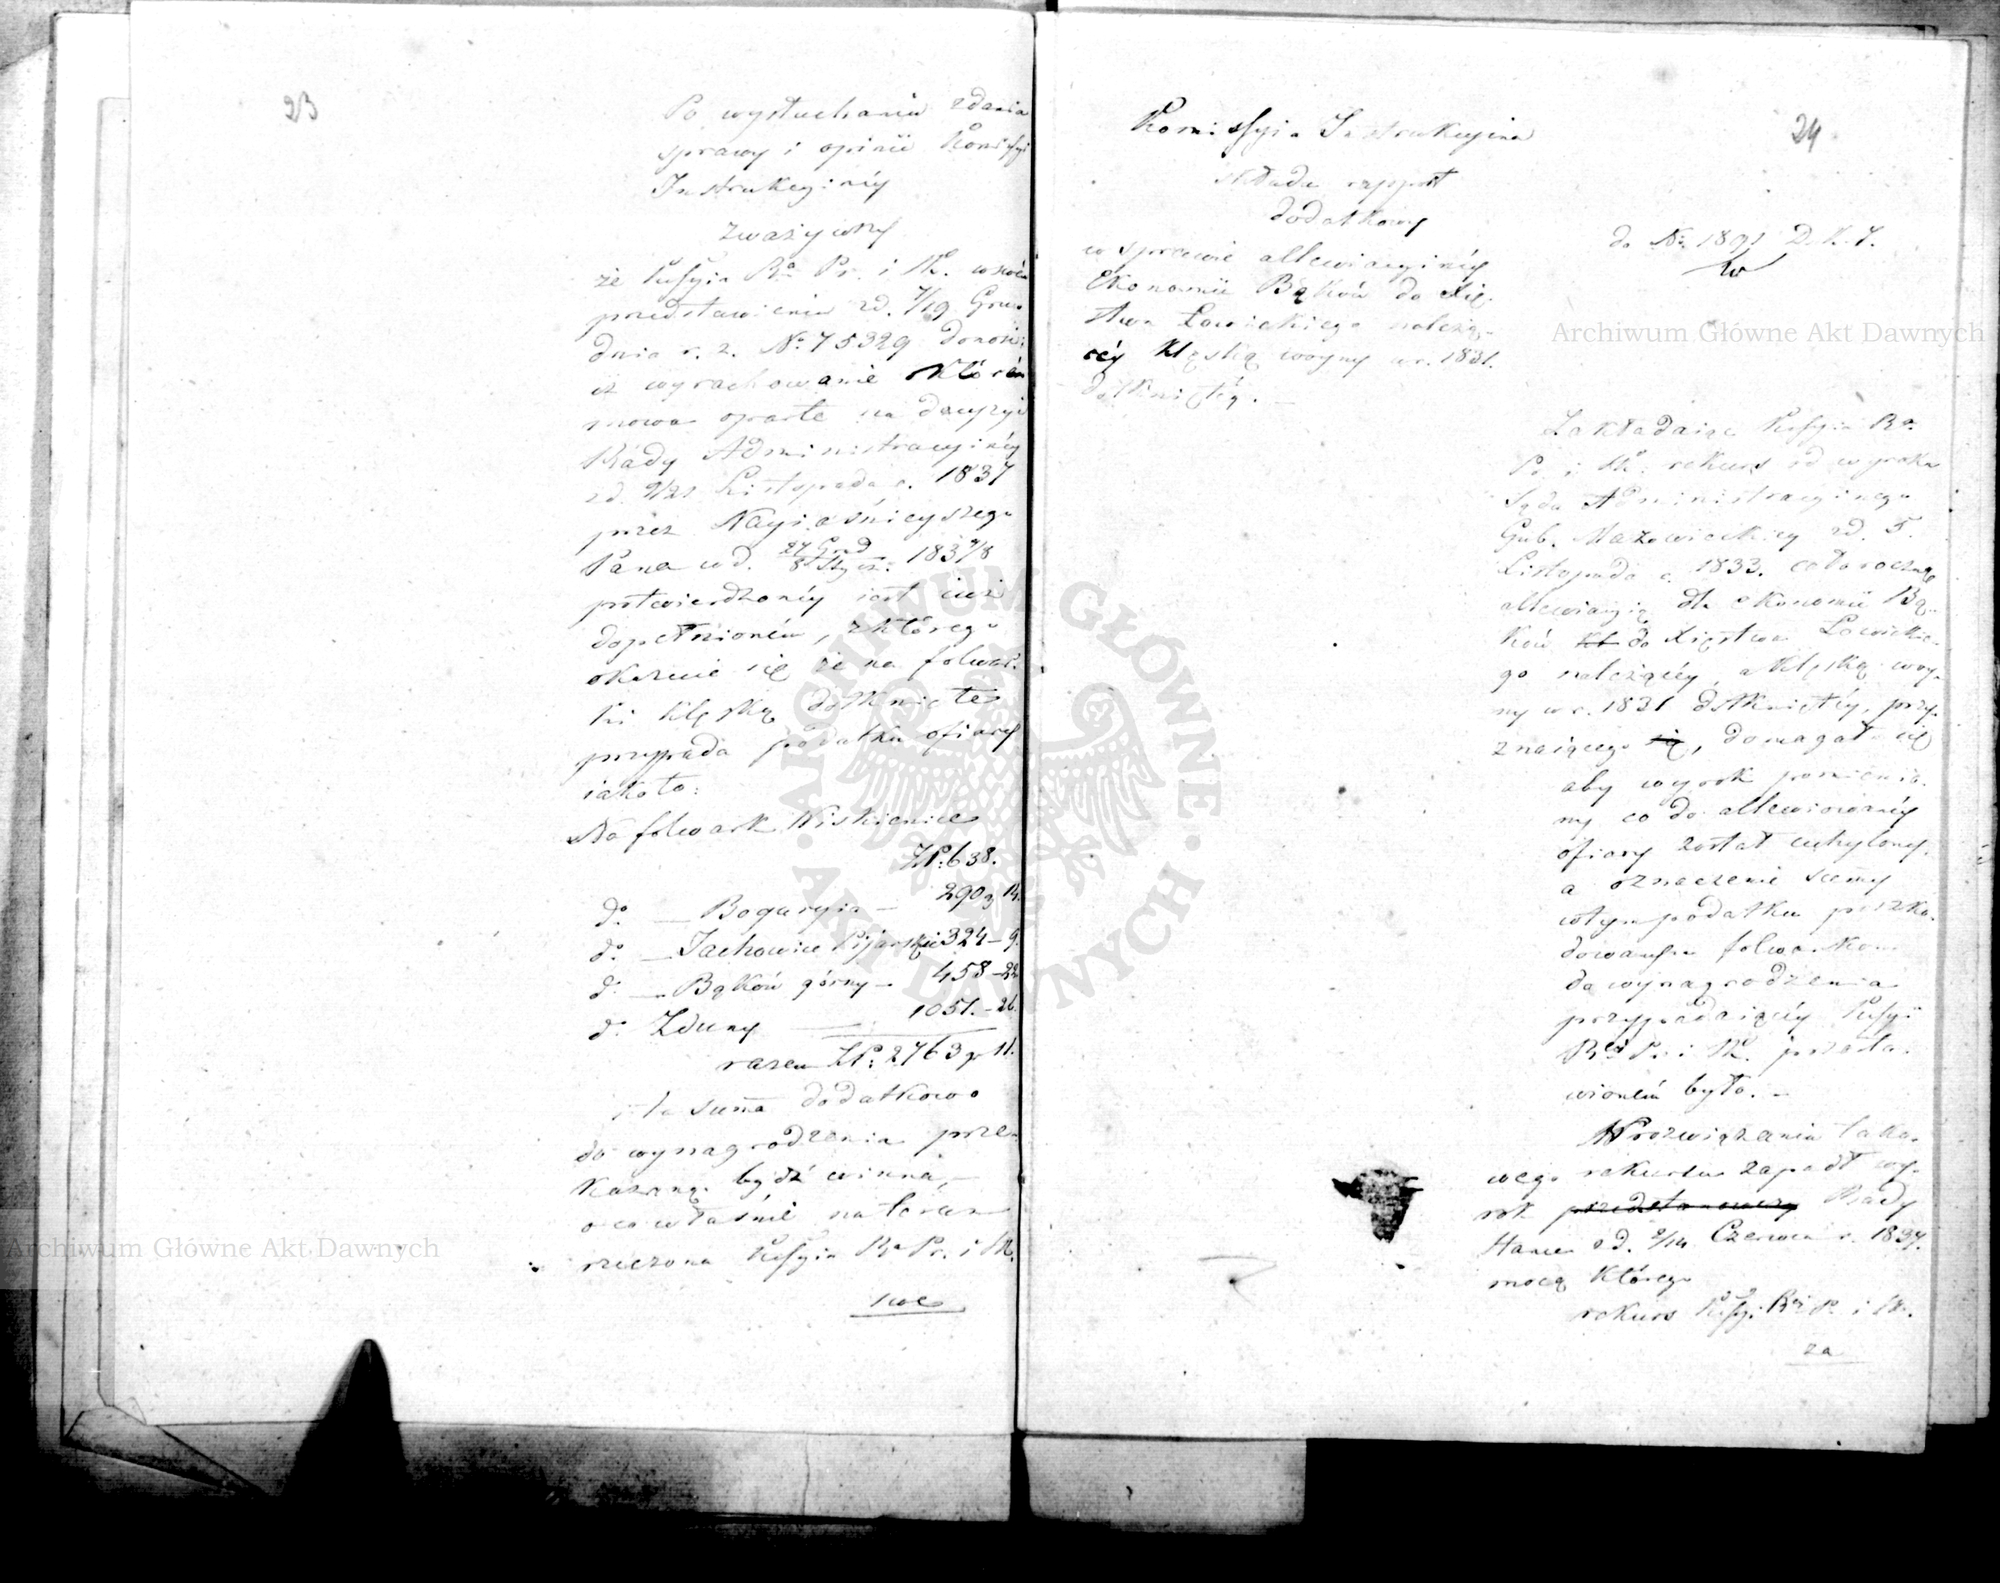 23
Po wysłuchaniu zdania
sprawy i opinii Komissyi
Instrukcyinéy
zważywszy
że Kssyia Ra Pr. i Sk. w swém
przedstawieniu zd. 7/19 Gru-
dnia r. z. No 75329 donosi
iż wyrachowanie o którém
mowa oparte na decyzyi
Rady Administracyinéy
zd. 9/21 Listopada r. 1837
przez Nayiaśnieyszego
Pana w d. 27 Grud/8 Stycz: 1837/8
potwierdzonéy iest iuż
dopełnioném, z którego
okazuie się że na folwar-
ki klęską dotknięte
przypada podatku ofiary
iakoto:
Na folwark Wiskienice
ZP. 638.
do. — Boguryia — 290 g 14.
do. — Jachowice Pijarskie 324 — 9.
do. — Bąków górny — 458 — 22
do. Zduny — 1051. — 26.
razem ZP: 2763 gr 11.
ta suma dodatkowo
do wynagrodzenia prze-
kazaną być winna, —
o co właśnie na teraz
rzeczona Kssyia Ra Pr. i Sk.
swe
24
Komissyia Instrukcyina
składa rapport
dodatkowy
w sprawie allewiacyinéy
Ekonomii Bąków do Xię-
stwa Łowickiego należą-
céy klęską woyny w r. 1831.
dotkniętéy. —
do No 1891 D. K. I.
Archiwum Główne Akt Dawnych
Zakładaiąc Kssyia Ra.
Pr. i Sk. rekurs od wyroku
Sądu Administracyinego
Gub. Mazowieckiey zd. 5.
Listopada r. 1833. całoroczną
allewiacyią dla ekonomii Bą-
ków do Xięstwa Łowickie-
go należącéy, a klęską woy-
ny w r. 1831 dotkniętéy, przy-
znaiącego się, domagał się
aby wyrok pomienio-
ny co do allewiowanéy
ofiary został uchylony,
a oznaczenie summy
w tym podatku poszko-
dowanym folwarkom
do wynagrodzenia
przypadaiącéy Kssyi
Rei Pr. i Sk. przesta-
wioném było. —
W rozwiązaniu tako-
wego rekursu zapadł wy-
rok przedstanowczy Rady
Stanu od. 2/14 Czerwca r. 1837.
mocą którego
rekurs Kssyi Rei P. i Sk.
za
Archiwum Główne Akt Dawnych
ARCHIWUM GŁÓWNE • AKT DAWNYCH •